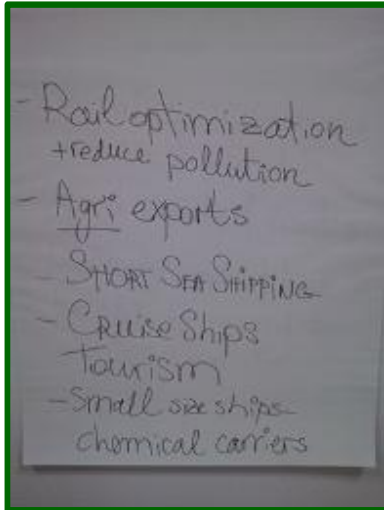 - Rail optimization
+reduce pollution
- Agri exports
- SHORT SEA SHIPPING
- Cruise Ships
Tourism
- Small size ships-
chemical carriers